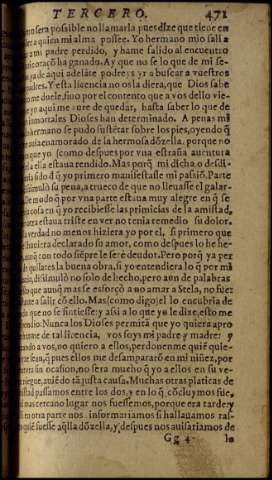 TERCERO. 471
no sera possible no llamarla, pues dize que tiene en
a quien mi alma possee. Yo hermano mio salí a
mi padre perdido, y hame salido al encuentro
coraçõ ha ganado. Ay que no se lo que de mi se-
de aqui adelãte podreys yr a buscar a vuestros
Y esta licencia no os la diera, que Dios sabe
me duele, sino por el contento que a vos dello vie-
yo aqui me aure de quedar, hasta saber lo que de
mortales Dioses han determinado. A penas mi
hermano se pudo sustẽtar sobre los pies, oyendo q̃
enamorado de la hermosa dõzella. porque no
que yo (como despues por vna estraña auentura
a ella estaua rendido. Mas porq̃ mi dicha, o desdi-
sido q̃ yo primero manifestasse mi passiõ. Parte
simuló su pena, a trueco de que no lleuasse el galar-
De modo q̃ por vna parte estaua muy alegre en q̃ se
cosa en q̃ yo recibiesse las primicias de la amistad,
otra estaua triste en ver no tenia remedio su dolor.
verdad no menos hiziera yo por el, si primero que
huuiera declarado su amor, como despues lo he he-
cõ todo siẽpre le seré deudor. Pero porq̃ ya per
quilates la buena obra, si yo entendiera lo q̃ por mi
dissimuló no solo de hecho, pero aun de palabras
que aunq̃ mas se esforçó a no amar a Stela, no fue
salir cõ ello. Mas (como digo) el lo encubria de
que no se sintiesse: y assi a lo que yo le dixe, esto me
Nunca los Dioses permitã que yo quiera apro
me de tal licencia, vos soys mi padre y madre: y
a vos, no quiero a ellos, perdonenme quiẽ quie-
sean, q̃ pues ellos me desampararõ en mi niñez, por
ocasion, no sera mucho q̃ yo a ellos en su ve-
auiẽdo tã justa causa. Muchas otras platicas de
passamos entre los dos, y en lo q̃ cõcluymos fue,
mas cercano lugar nos fuessemos, porque era tarde: y
otra parte nos informariamos si hallauamos ras-
quiẽ fuesse aq̃lla dõzella, y despues nos auisariamos de
Gg 4 lo